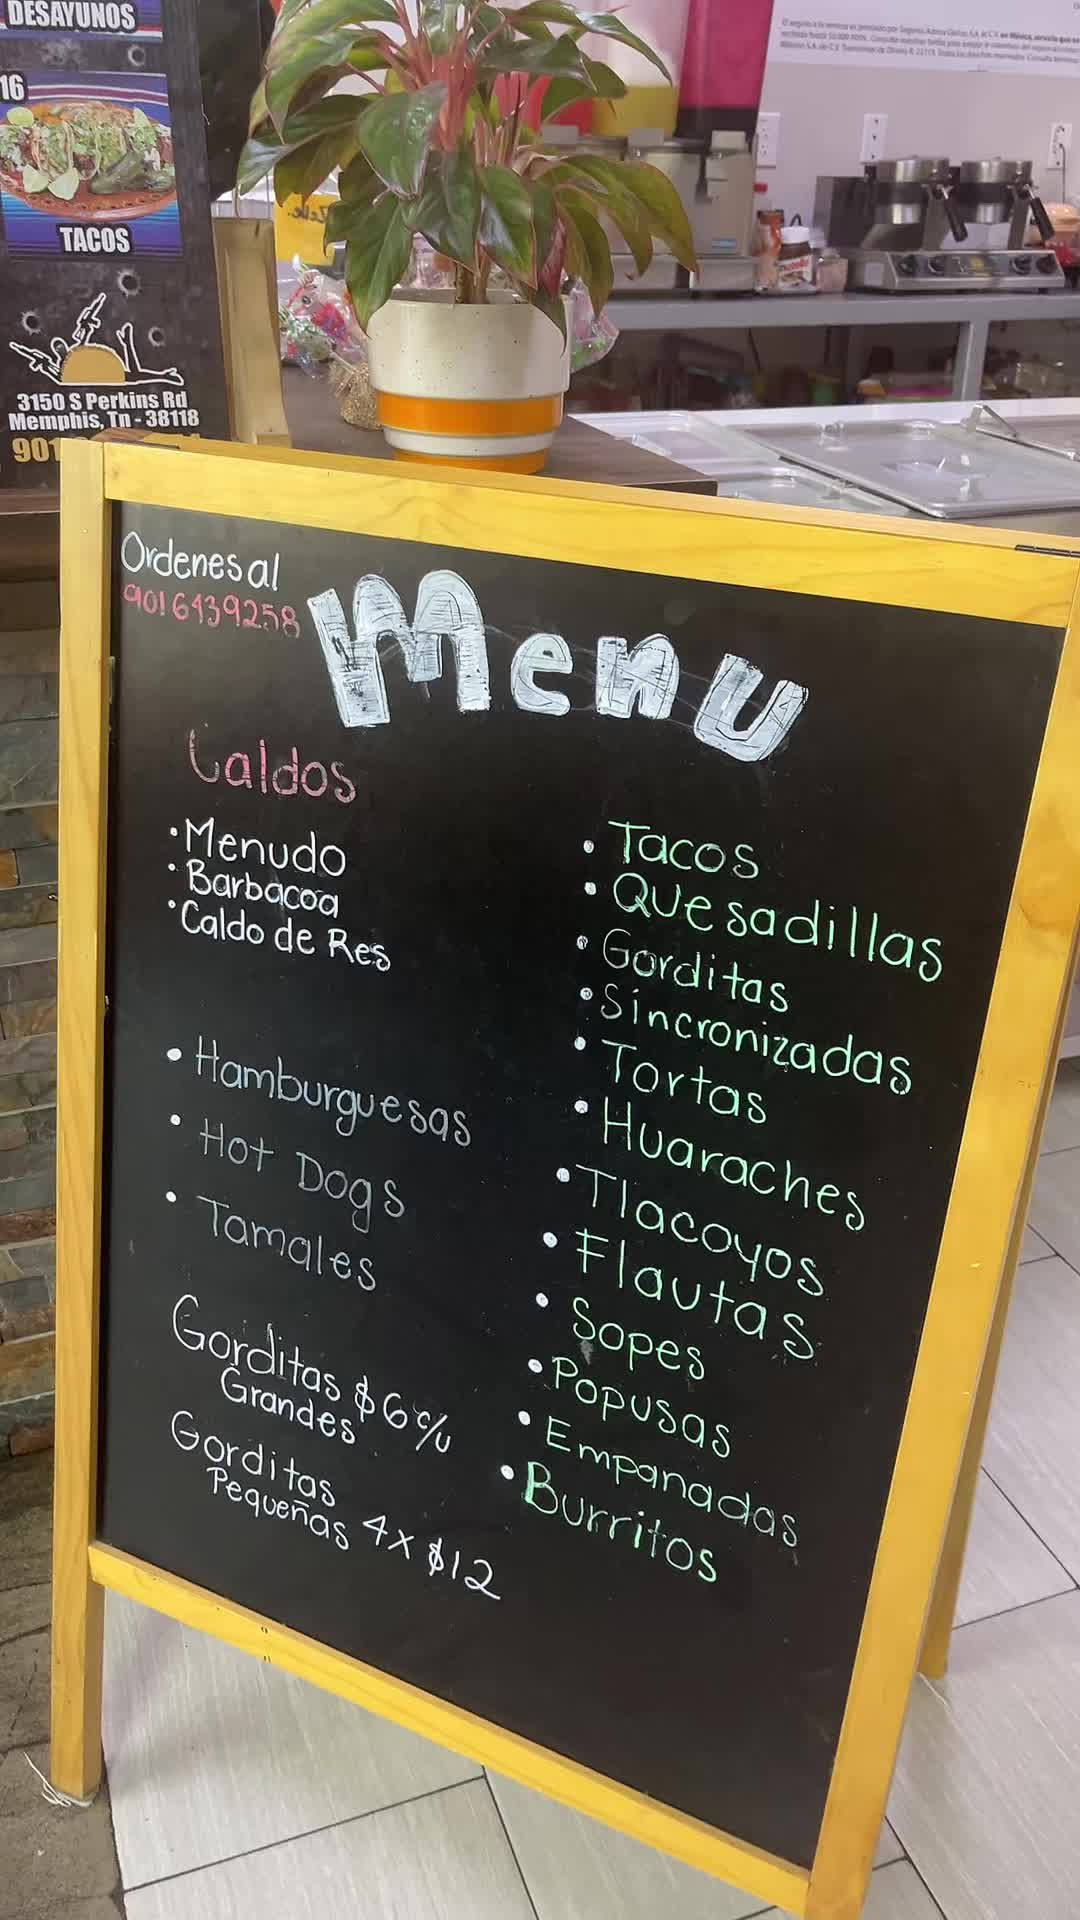 DESAYUNOS
16
TACOS
3150 S Perkins Rd
Memphis, Tn - 38118
901
Ordenes al
9016439258
Menu
Caldos
· Menudo
· Barbacoa
· Caldo de Res
· Hamburguesas
· Hot Dogs
· Tamales
Gorditas $6 c/u
Grandes
Gorditas
Pequeñas 4x $12
· Tacos
· Quesadillas
· Gorditas
· Sincronizadas
· Tortas
· Huaraches
· Tlacoyos
· Flautas
· Sopes
· Popusas
· Empanadas
· Burritos